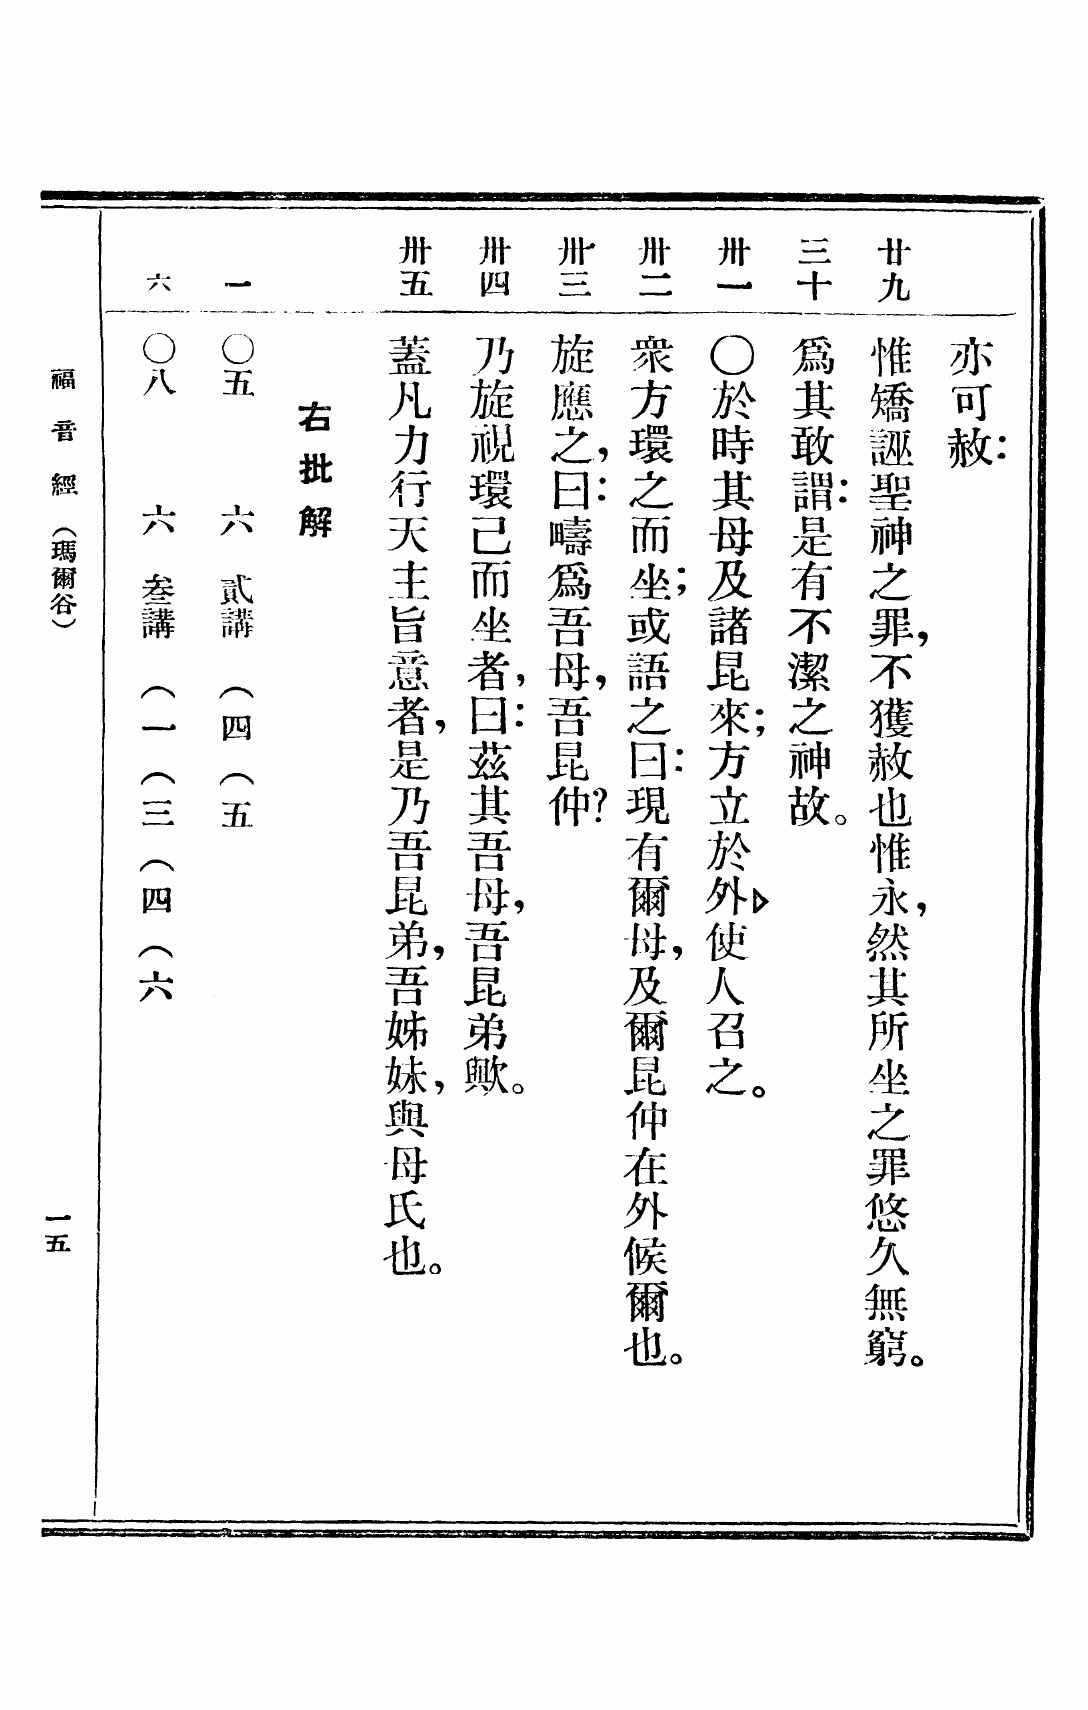 亦可赦：
廿九 惟矯誣聖神之罪，不獲赦也惟永，然其所坐之罪悠久無窮。
三十 爲其敢謂：是有不潔之神故。
卅一 〇於時其母及諸昆來；方立於外▷使人召之。
卅二 衆方環之而坐；或語之曰：現有爾母，及爾昆仲在外候爾也。
卅三 旋應之，曰：疇爲吾母，吾昆仲？
卅四 乃旋視環己而坐者，曰：茲其吾母，吾昆弟歟。
卅五 蓋凡力行天主旨意者，是乃吾昆弟，吾姊妹，與母氏也。
右批解
一 〇五 六 貳講 （四（五
六 〇八 六 叁講 （一（三（四（六
福音經（瑪爾谷） 一五